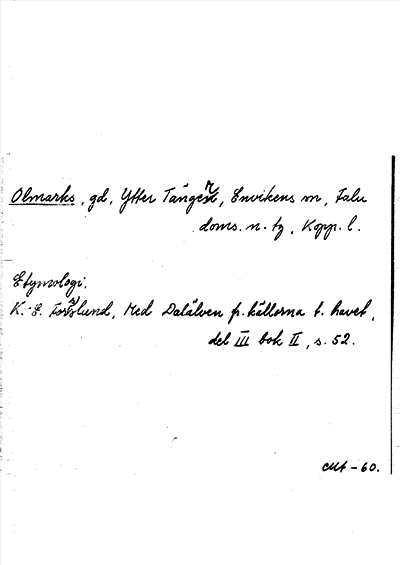 Olmarks, gd, Ytter Tänger, Envikens sn, Falu
doms. n. tg, Kopp. l.
Etymologi.
K.-E. Forslund, Med Dalälven fr. källorna t. havet,
del III bok II, s. 52.
-60.